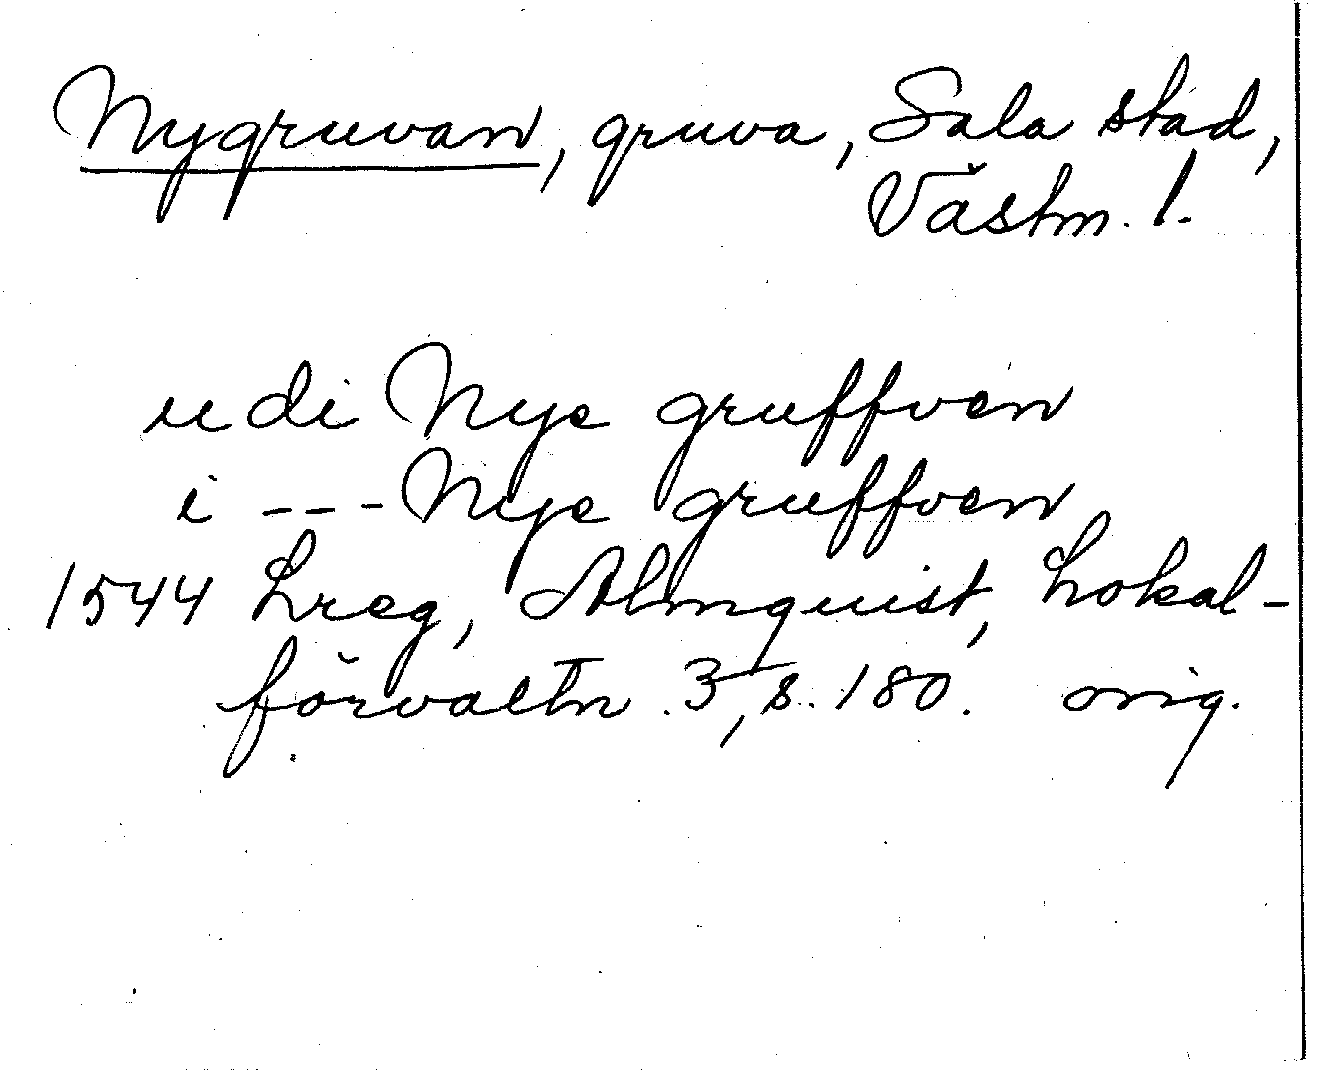 Nygruvan, gruva, Sala stad,
Västm. l.
udi Nye gruffven
i --- Nye gruffven
1544 Lreg, Almquist, Lokal-
förvaltn. 3, s. 180. orig.